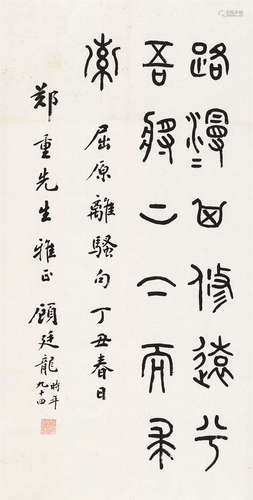 路漫〻其修遠兮
吾將上下而求
索
屈原離騷句 丁丑春日
鄭重先生雅正 顧廷龍
時年九十四